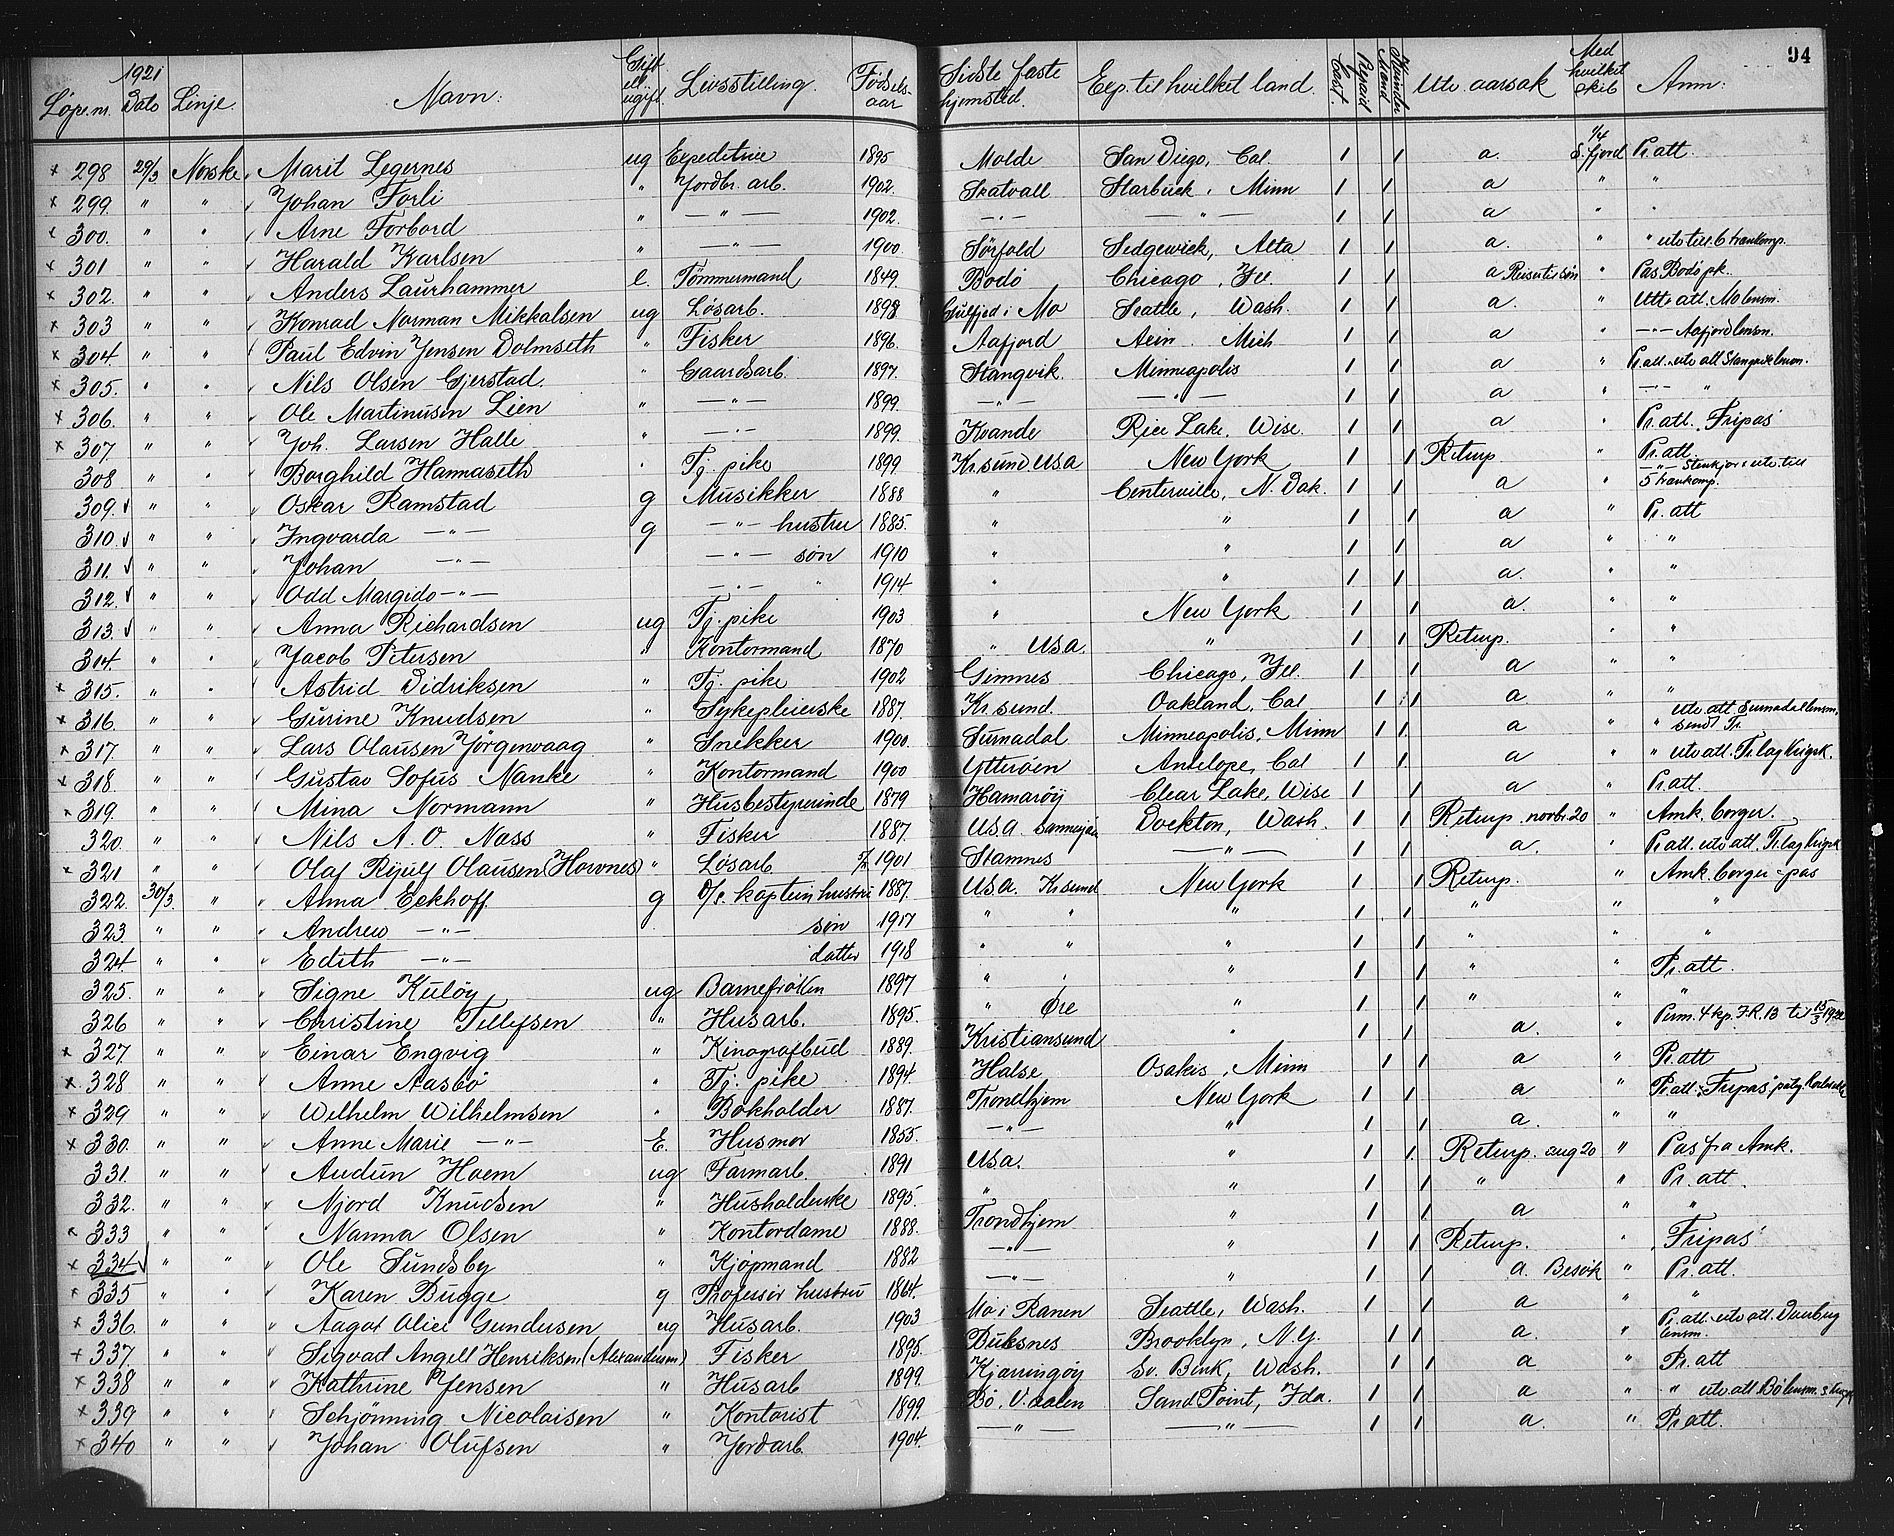 94
1921
Løpe.nr. Dato Linje. Navn: Gift el. ugift Livsstilling. Fødselsaar Sidste faste hjemsted. Exp. til hvilket land. Utv. aarsak Med hvilket skib Anm:
× 298 29/3 Norske Marit Legernes ug Expeditrice 1895 Molde San Diego, Cal. 1 1 a. 1/4 S.fjord Pr. att.
× 299. " " Johan Forli " Jordbr. arb. 1902. Skatvall Starbuck, Minn 1 1 a " "
× 300. " " Arne Forbord " — " — 1902. — " — — " — 1 1 a " "
× 301 " " Harald Karlsen " — " — 1900. Sørfold Sedgewick, Alta 1 1 a. " "
× 302. " " Anders Laurhammer e. Tømmermand 1849. Bodø Chicago, Ill. 1 1 a Reise til søn " Pas. Bodø pk.
× 303 " " Konrad Norman Mikkalsen ug Løsarb. 1898 Mo Seattle, Wash. 1 1 a. " Utv att. Mo lensm.
× 304. " " Paul Edvin Jensen Dolmseth " Fisker 1896. Aafjord Mich 1 1 a " — " — Aafjord lensm.
× 305. " " Nils Olsen Gjerstad. " Gaardsarb. 1897. Stangvik. Minneapolis 1 1 a " Pr. att. utv att Stangvik lensm.
× 306. " " Ole Martinusen Lien " — " — 1899. — " — — " — 1 1 a " — " — "
× 307. " " Joh. Larsen Halle " — " — 1899. Kvande Rice Lake, Wisc. 1 1 a " Pr. att. "Fripas"
308 " " Borghild Hannaseth " Tj. pike 1899 Kr.sund USA New York 1 1 Returp. " Pr. att.
309. " " Oskar Ramstad g Musikker 1888 " Centerville, N. Dak. 1 1 a " — " — Stenkjær utv. till 5 trænkomp.
310. " " Ingvarda — " — g — " — hustru 1885. " " 1 1 a " Pr. att
311. " " Johan — " — — " — søn 1910 " " 1 1 a " "
312. " " Odd Margido — " — — " — " 1914 " " 1 1 a. " "
313. " " Anna Richardsen ug Tj. pike 1903 " New York 1 1 a. " "
314. " " Jacob Petersen " Kontormand 1870 " USA. " 1 1 Returp. " "
× 315. " " Astrid Didriksen " Tj. pike 1902 Gimnes Chicago, Ill. 1 1 a " "
× 316. " " Gurine Knudsen " Sykepleierske 1887. Kr.sund. Oakland, Cal 1 1 a. " "
× 317. " " Lars Olausen Jørgenvaag " Snekker 1900. Surnadal Minneapolis, Minn 1 1 a " " utv. att. Surnadal lensm.
× 318. " " Gustav Sofus Nanke " Kontormand 1900 Ytterøen Antelope, Cal 1 1 a " " utv att. Tr.lag krigsk.
× 319. " " Mina Normann " Husbestyrerinde 1879 Hamarøy Clear Lake, Wisc 1 1 a " Pr. att.
320. " " Nils A. O. Næss " Fisker 1887. USA. Dockton, Wash. 1 1 Returp. novbr. 20 " Amk. borger.
× 321 " " Olaf Rejulf Olausen (Hovnes) " Løsarb 1901 Stamnes — " — 1 1 a. " Pr. att. utv. att. Tr.lag krigsk
322. 30/3. " Alma Eckhoff g kaptein hustru 1887. USA. Kr.sund New York 1 1 Returp. " Amk. borger-pas
323 " " Andrew — " — søn 1917 " " " 1 1 " " "
324. " " Edith — " — datter 1918 " " " 1 1 " " "
325. " " Signe Kuløy ug Barnefrøken 1897 " " " 1 1 " " Pr. att.
326 " " Christine Tellefsen " Husarb. 1895. " Øre " 1 1 " " "
× 327. " " Einar Engvig " Kinografbud 1889. Kristiansund " 1 1 a. " Perm. 4 kp. I.R. 13 til 15/3 19
× 328 " " Anne Aasbø " Tj. pike 1894. Halse Osakis, Minn 1 1 a " Pr. att
× 329 " " Wilhelm Wilhelmsen " Bokholder 1887. Trondhjem New York 1 1 a " Pr. att. "Fripas"
× 330. " " Anne Marie — " — E. Husmor 1855. — " — " 1 1 a. " "
331. " " Audun Hoem ug Farmarb. 1891 USA. " 1 1 Returp. aug 20 " Pas fra Amk.
332. " " Njord Knudsen " Husholderske 1895. " " 1 1 " " Pr. att.
× 333 " " Nanna Olsen " Kontordame 1888. Trondhjem " 1 1 a " "
× 334 " " Ole Sundsby " Kjøpmand 1882 — " — " 1 1 Returp. " "Fripas"
× 335 " " Karen Bugge g Professor hustru 1864. — " — " 1 1 a. Besøk " Pr. att.
× 336. " " Aagot Alice Gundersen ug Husarb. 1903 Mo i Ranen Seattle, Wash. 1 1 a " "
× 337. " " Sigvart Angell Henriksen (Alexandersen) " Fisker 1895. Buksnes Brooklyn, N.Y. 1 1 a. " Pr. att. utv att. lensm.
× 338 " " Kathrine Jensen " Husarb 1899. Kjærringøy So. Bend, Wash. 1 1 a " Pr. att
× 339 " " Schjønning Nicolaisen " Kontorist 1899. Bø, V.aalen Sand Point, Ida. 1 1 a " " utv att. Bø lensm.
× 340 " " Johan Olufsen " Jordarb. 1904. — " — — " — 1 1 a. " Pr. att.